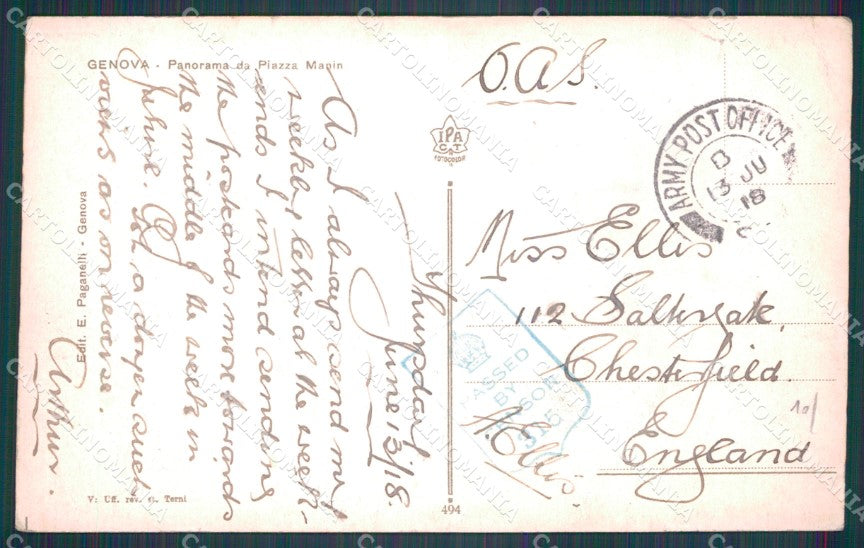 GENOVA - Panorama da Piazza Manin
O.A.S.
IPA
C.T.
FOTOCOLOR
ARMY POST OFFICE
B
13 JU
18
Thursday
June 13/18.
As I always send my
weekly letter at the week-
ends I intend sending
the postcards more towards
the middle of the week in
future. Got a dozen such
views as on reverse.
Arthur.
Miss Ellis
112 Saltergate,
Chesterfield.
England
PASSED
BY
CENSOR
A. Ellis.
10/
Edit. E. Paganelli - Genova
V: Uff. rev. G. Terni
494
CARTOLINOMANIA